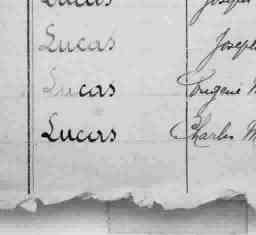 Lucas Joseph
Lucas Joseph
Lucas Eugene
Lucas Charles